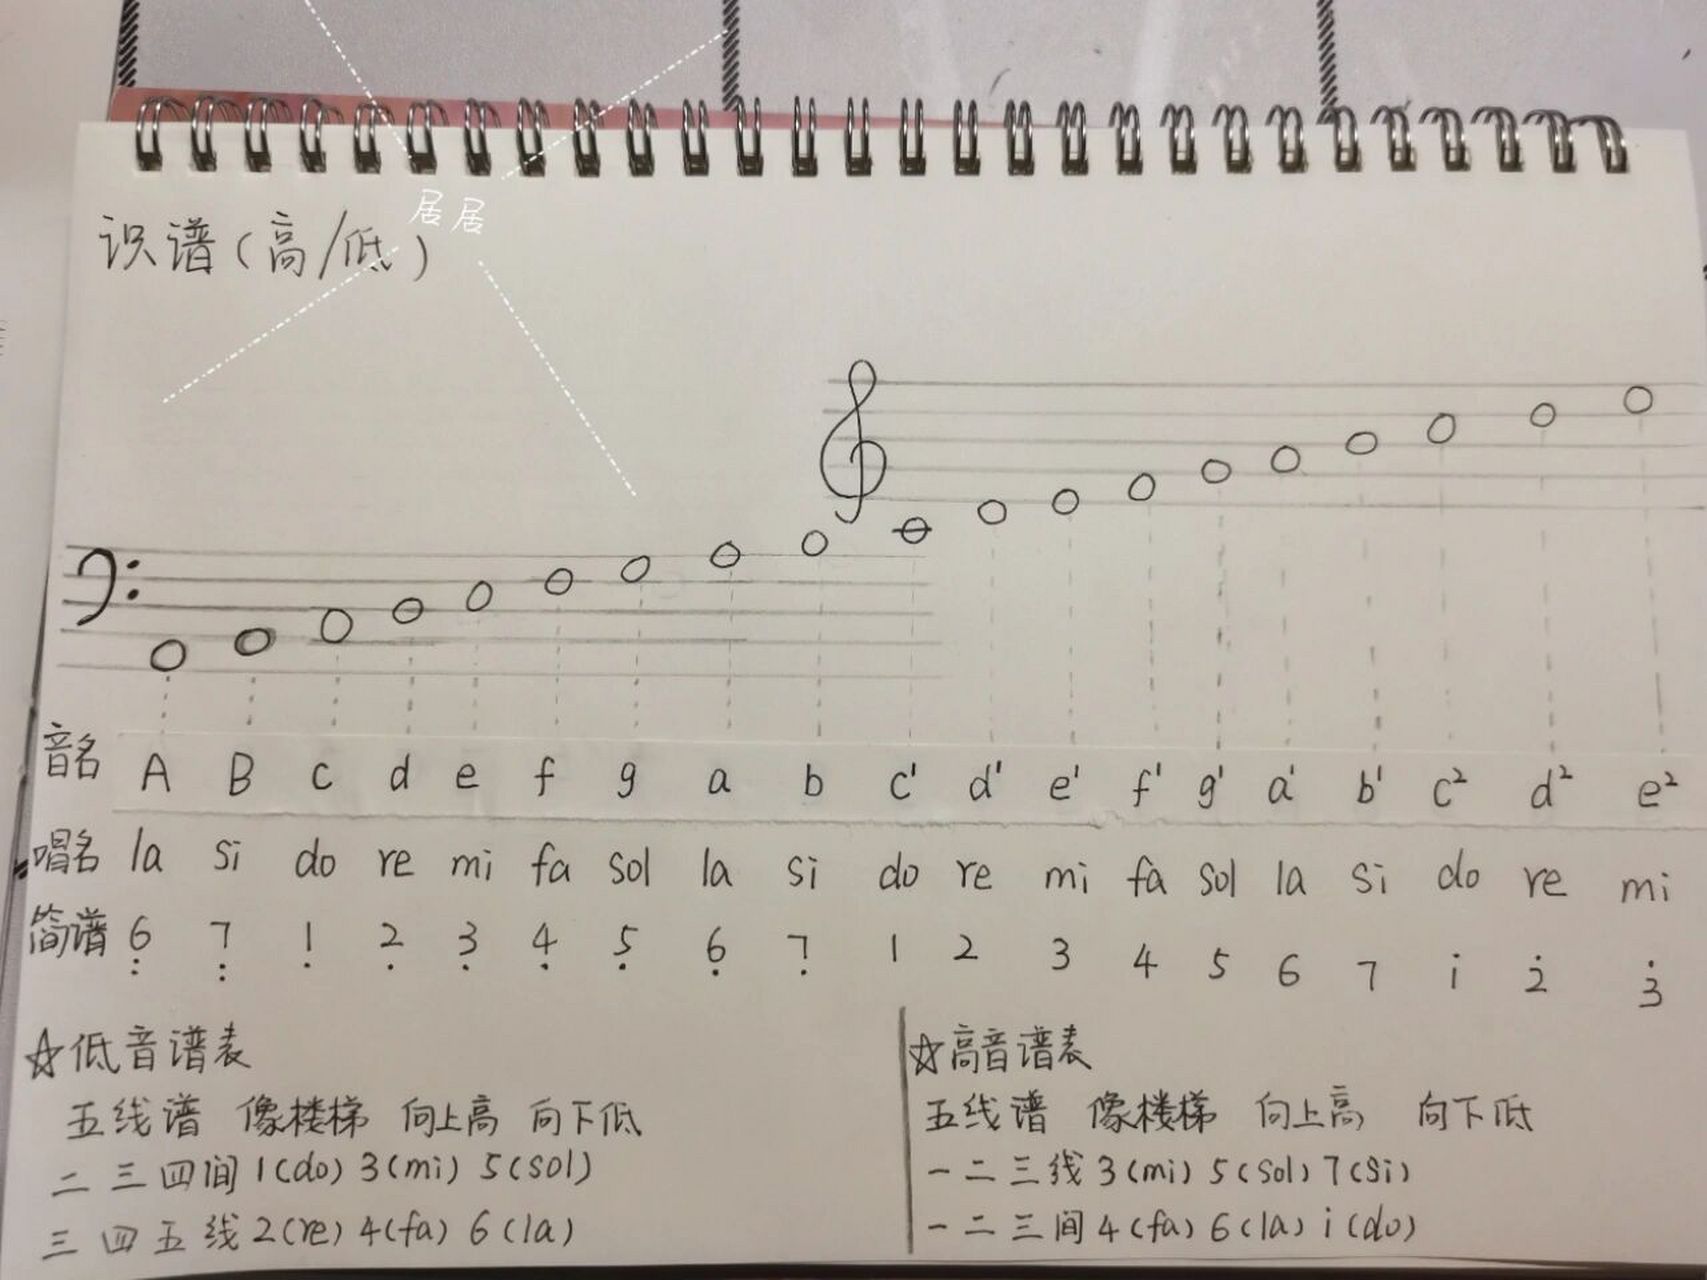 居居
识谱(高/低)
音名 A B c d e f g a b c' d' e' f' g' a' b' c² d² e²
唱名 la si do re mi fa sol la si do re mi fa sol la si do re mi
简谱 6̤ 7̤ 1̣ 2̣ 3̣ 4̣ 5̣ 6̣ 7̣ 1 2 3 4 5 6 7 i 2̇ 3̇
☆低音谱表
五线谱 像楼梯 向上高 向下低
二三四间 1(do) 3(mi) 5(sol)
三四五线 2(re) 4(fa) 6(la)
☆高音谱表
五线谱 像楼梯 向上高 向下低
一二三线 3(mi) 5(sol) 7(si)
一二三间 4(fa) 6(la) i(do)